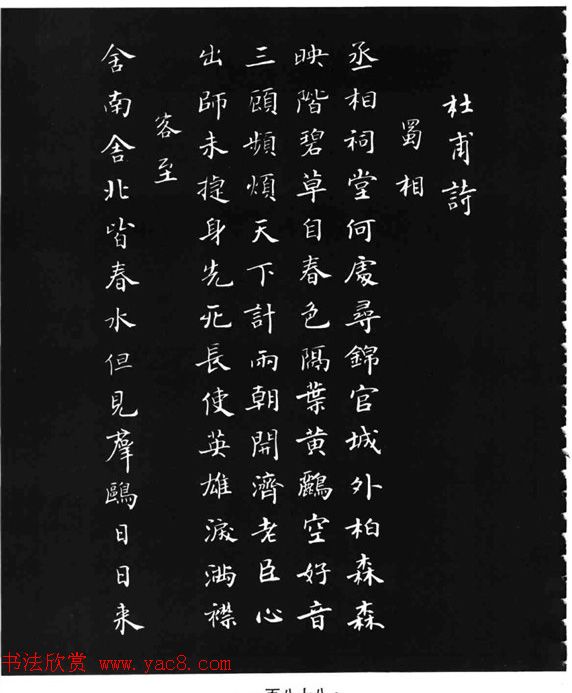 杜甫詩
蜀相
丞相祠堂何處尋錦官城外柏森森
映階碧草自春色隔葉黄鸝空好音
三顧頻煩天下計兩朝開濟老臣心
出師未捷身先死長使英雄淚滿襟
客至
舍南舍北皆春水但見羣鷗日日来
书法欣赏 www.yac8.com